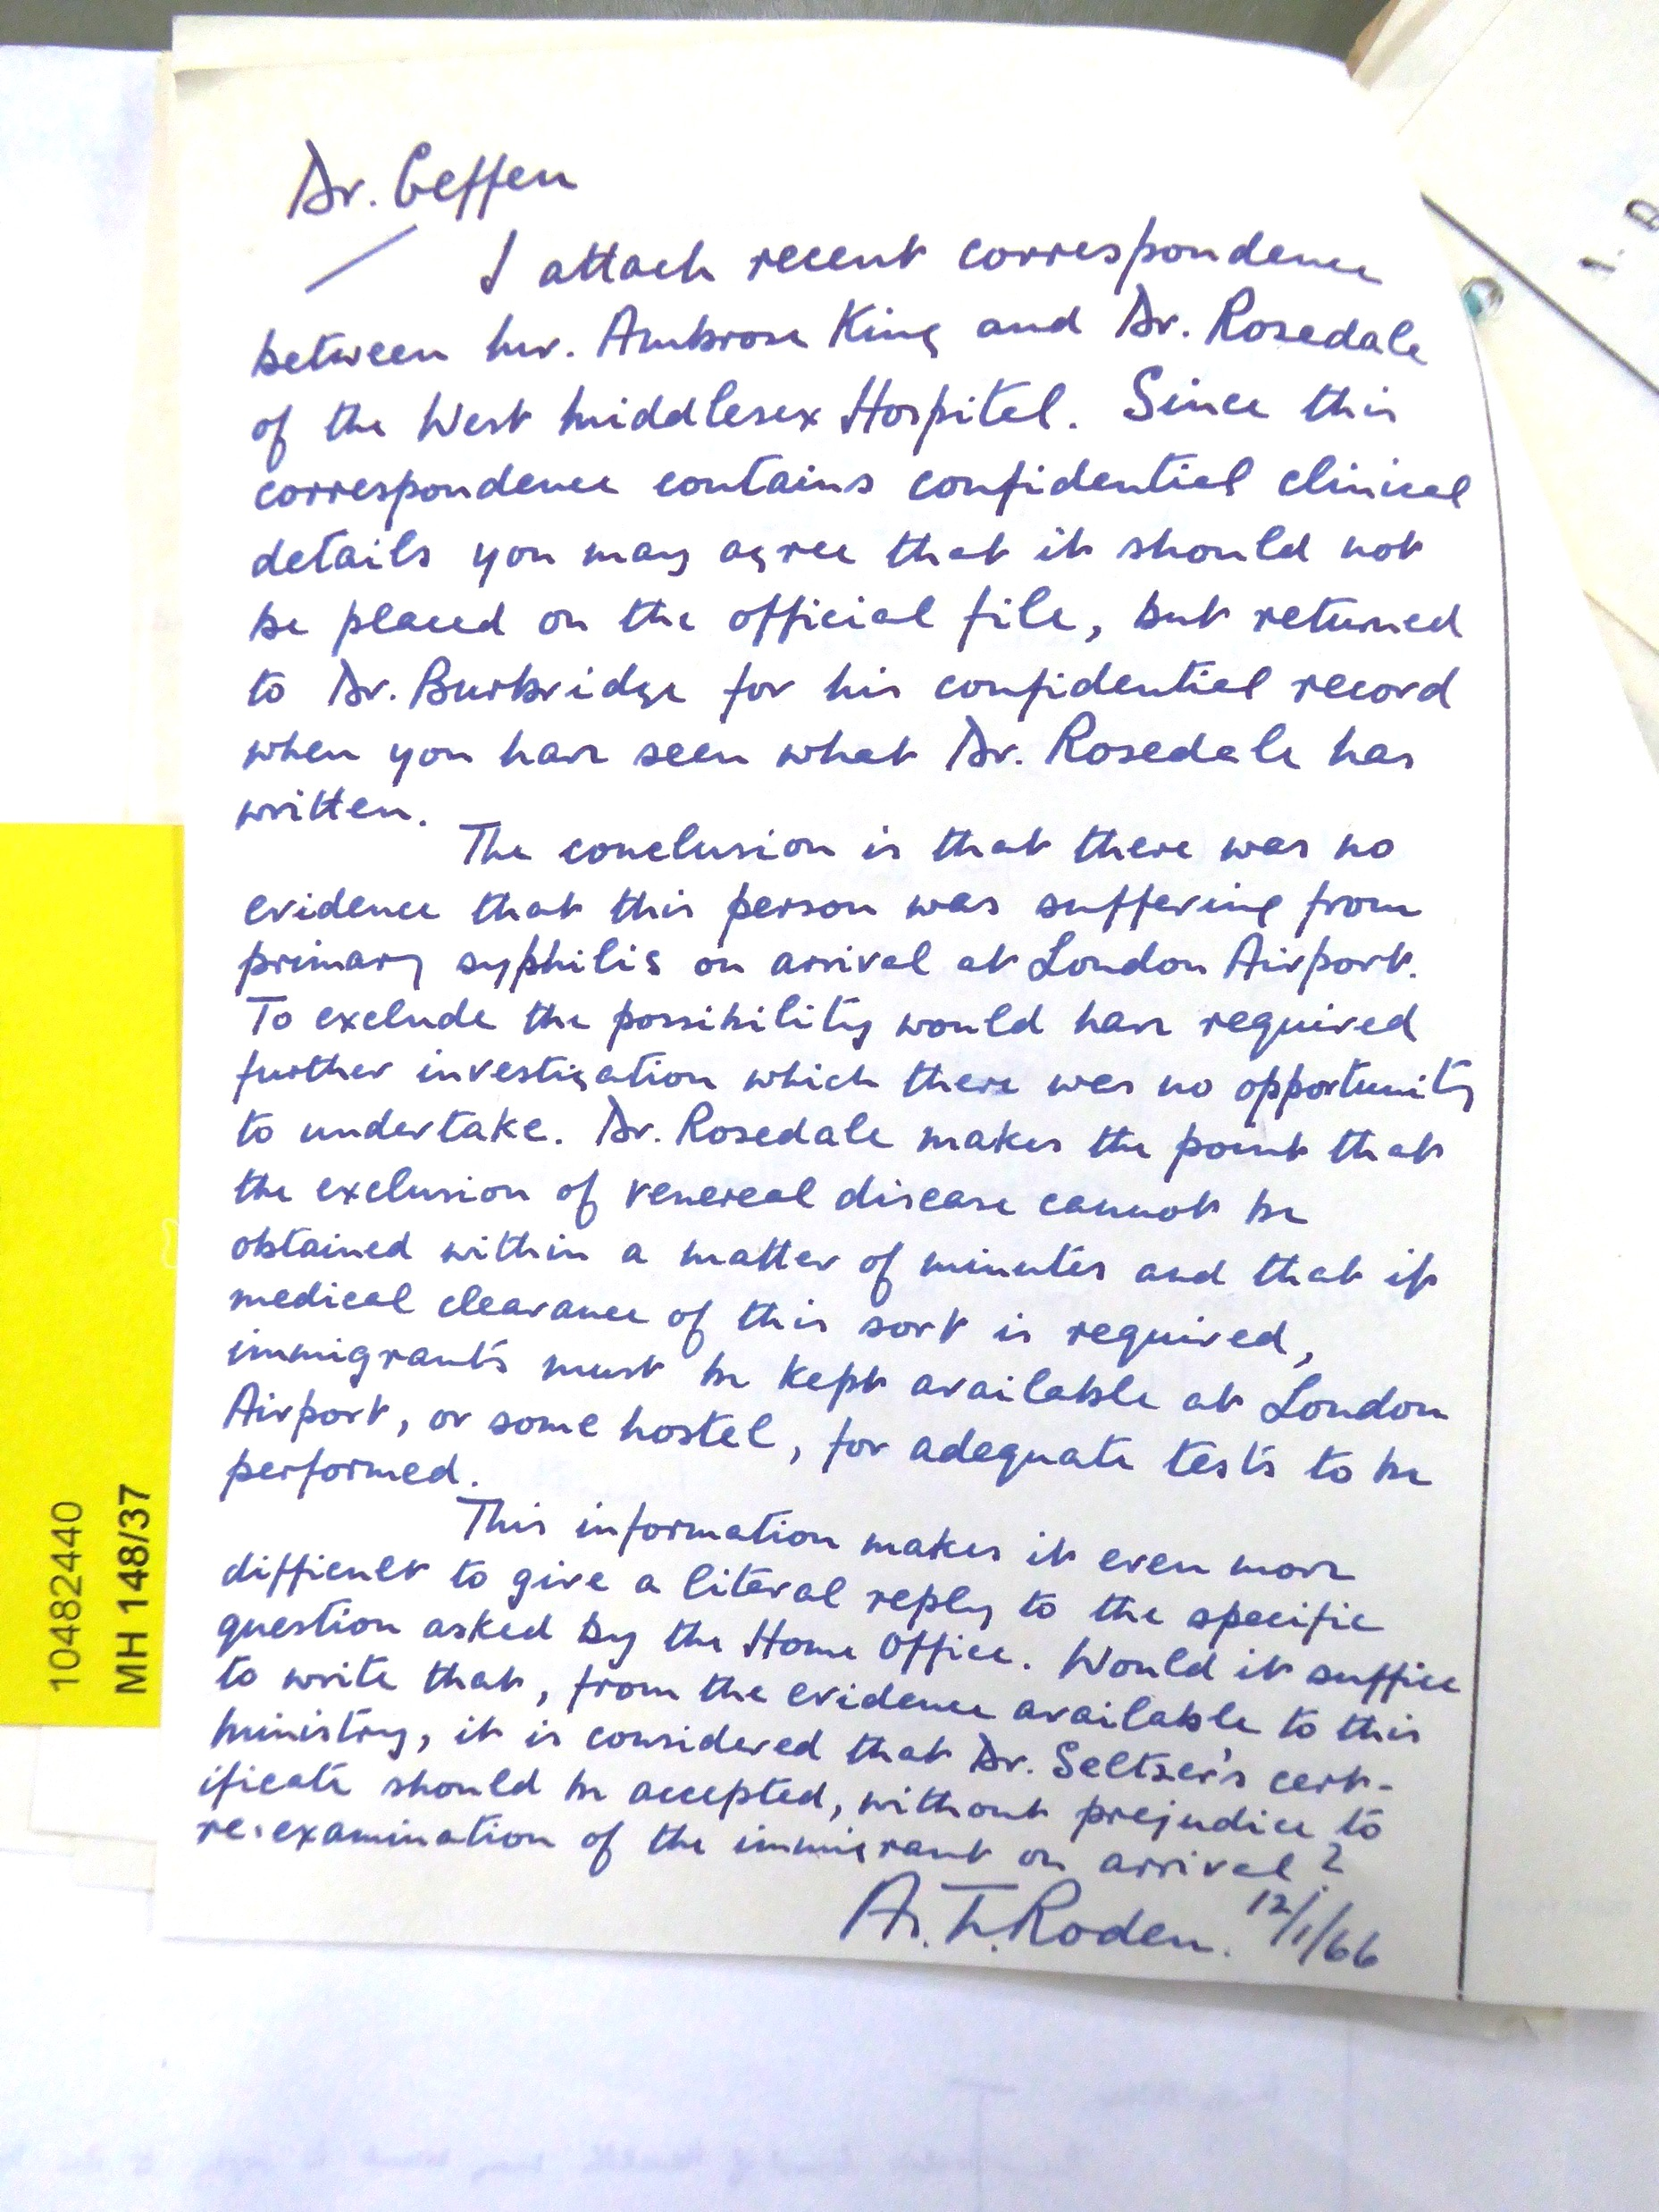 Dr. Geffen
I attach recent correspondence
between Mr. Ambrose King and Dr. Rosedale
of the West Middlesex Hospital. Since this
correspondence contains confidential clinical
details you may agree that it should not
be placed on the official file, but returned
to Dr. Burbridge for his confidential record
when you have seen what Dr. Rosedale has
written.
The conclusion is that there was no
evidence that this person was suffering from
primary syphilis on arrival at London Airport.
To exclude the possibility would have required
further investigation which there was no opportunity
to undertake. Dr. Rosedale makes the point that
the exclusion of venereal disease cannot be
obtained within a matter of minutes and that if
medical clearance of this sort is required,
immigrants must be kept available at London
Airport, or some hostel, for adequate tests to be
performed.
This information makes it even more
difficult to give a literal reply to the specific
question asked by the Home Office. Would it suffice
to write that, from the evidence available to this
Ministry, it is considered that Dr. Seltzer's cert-
ificate should be accepted, without prejudice to
re-examination of the immigrant on arrival?
A. T. Roden. 12/1/66
10482440
MH 148/37